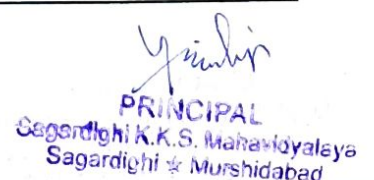 PRINCIPAL
Sagardighi K.K.S. Mahavidyalaya
Sagardighi ☆ Murshidabad